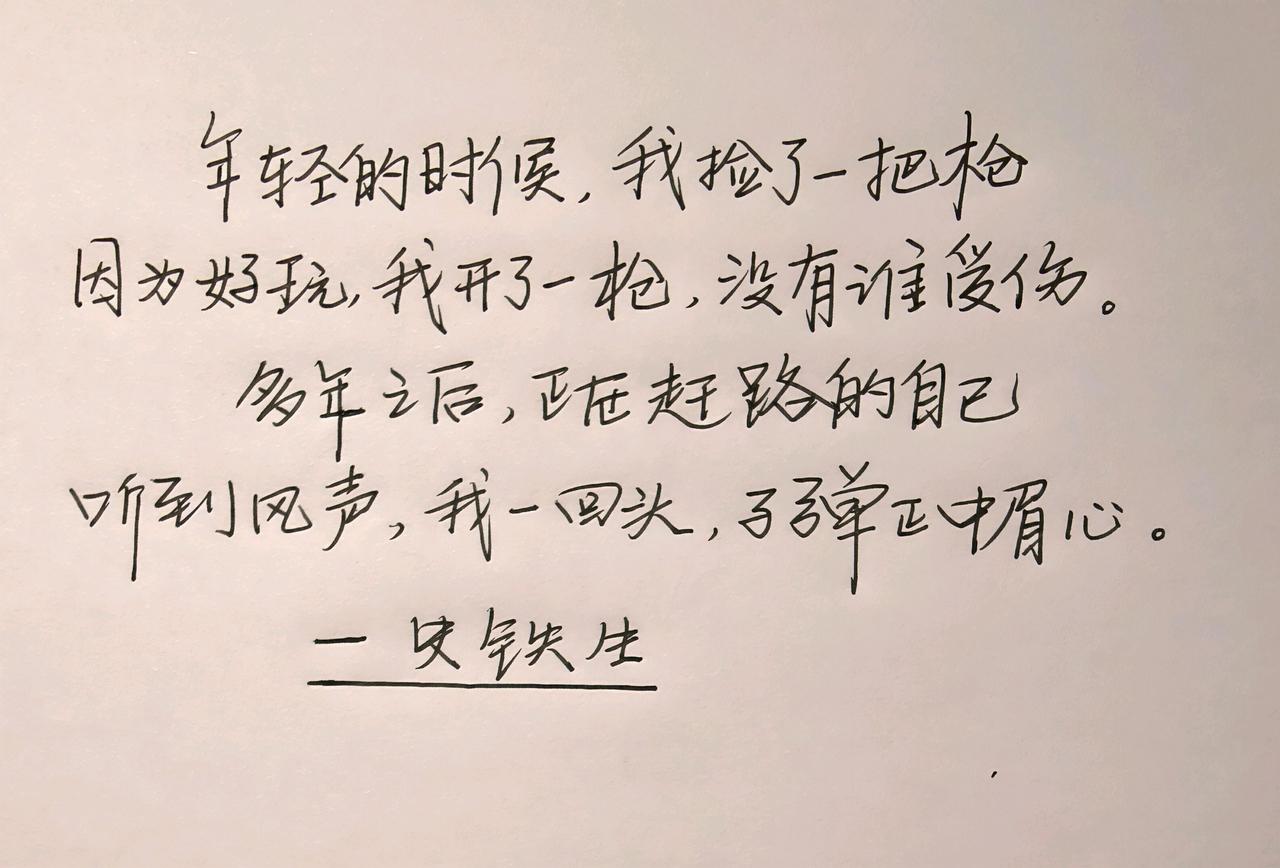 年轻的时候，我捡了一把枪
因为好玩，我开了一枪，没有谁受伤。
多年之后，正在赶路的自己
听到风声，我一回头，子弹正中眉心。
一史铁生